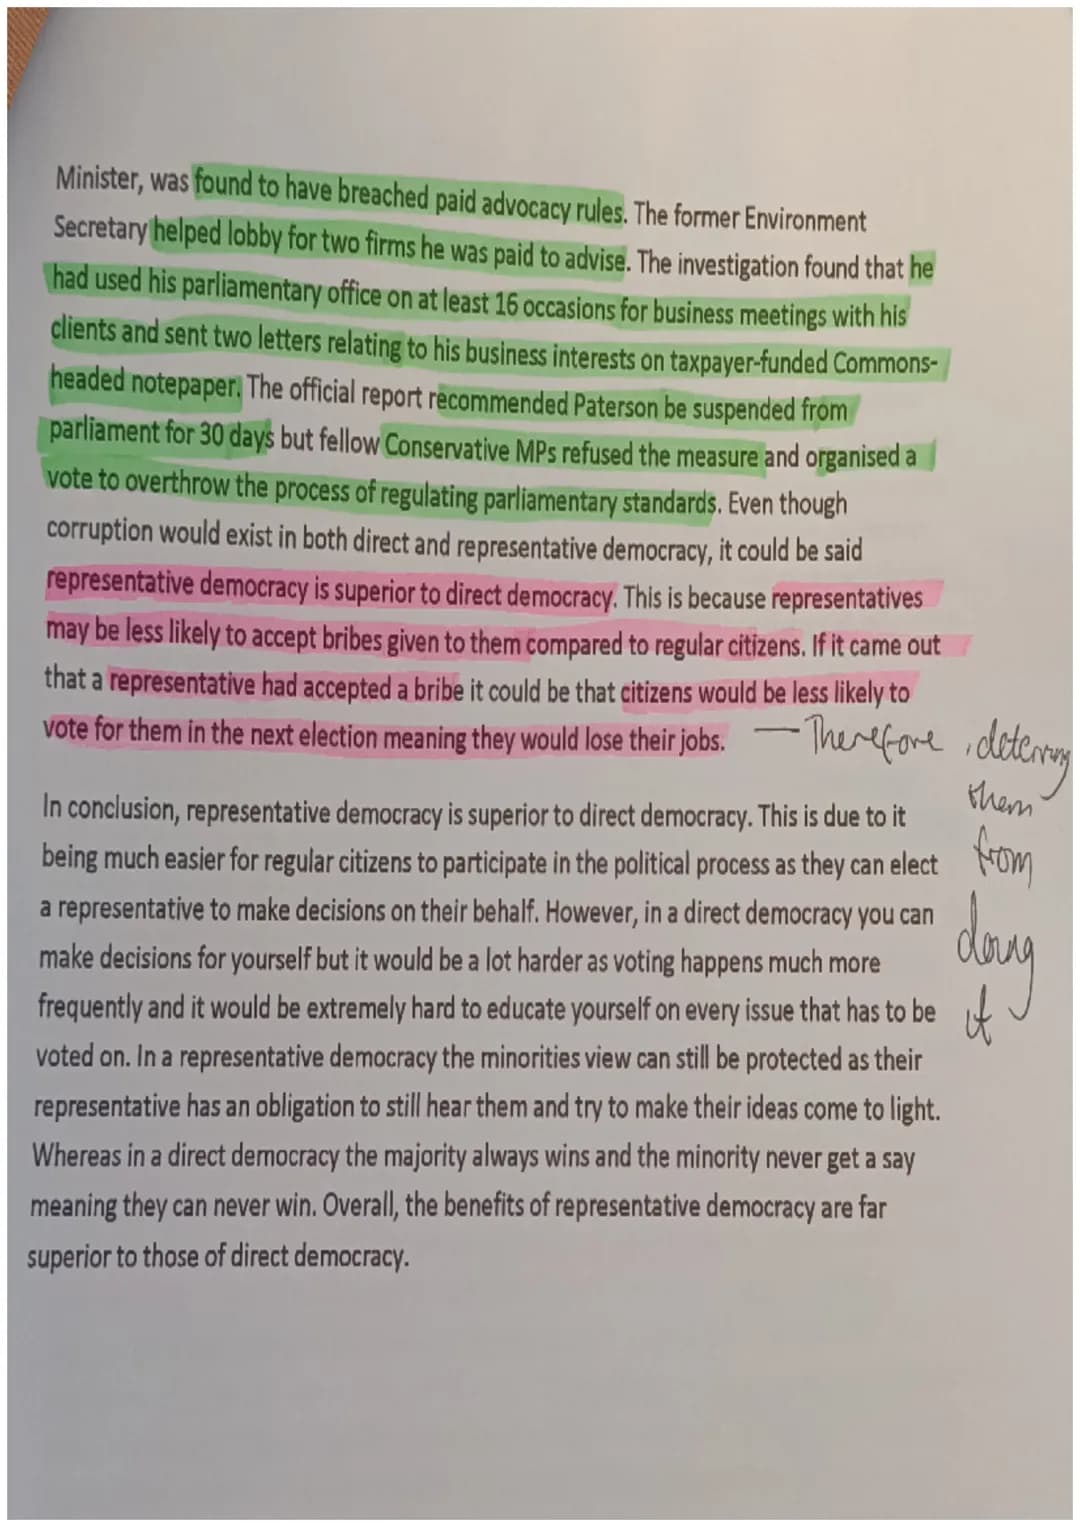 Minister, was found to have breached paid advocacy rules. The former Environment
Secretary helped lobby for two firms he was paid to advise. The investigation found that he
had used his parliamentary office on at least 16 occasions for business meetings with his
clients and sent two letters relating to his business interests on taxpayer-funded Commons-
headed notepaper. The official report recommended Paterson be suspended from
parliament for 30 days but fellow Conservative MPs refused the measure and organised a
vote to overthrow the process of regulating parliamentary standards. Even though
corruption would exist in both direct and representative democracy, it could be said
representative democracy is superior to direct democracy. This is because representatives
may be less likely to accept bribes given to them compared to regular citizens. If it came out
that a representative had accepted a bribe it could be that citizens would be less likely to
vote for them in the next election meaning they would lose their jobs. — Therefore, deterring
them
from
doing
it
In conclusion, representative democracy is superior to direct democracy. This is due to it
being much easier for regular citizens to participate in the political process as they can elect
a representative to make decisions on their behalf. However, in a direct democracy you can
make decisions for yourself but it would be a lot harder as voting happens much more
frequently and it would be extremely hard to educate yourself on every issue that has to be
voted on. In a representative democracy the minorities view can still be protected as their
representative has an obligation to still hear them and try to make their ideas come to light.
Whereas in a direct democracy the majority always wins and the minority never get a say
meaning they can never win. Overall, the benefits of representative democracy are far
superior to those of direct democracy.